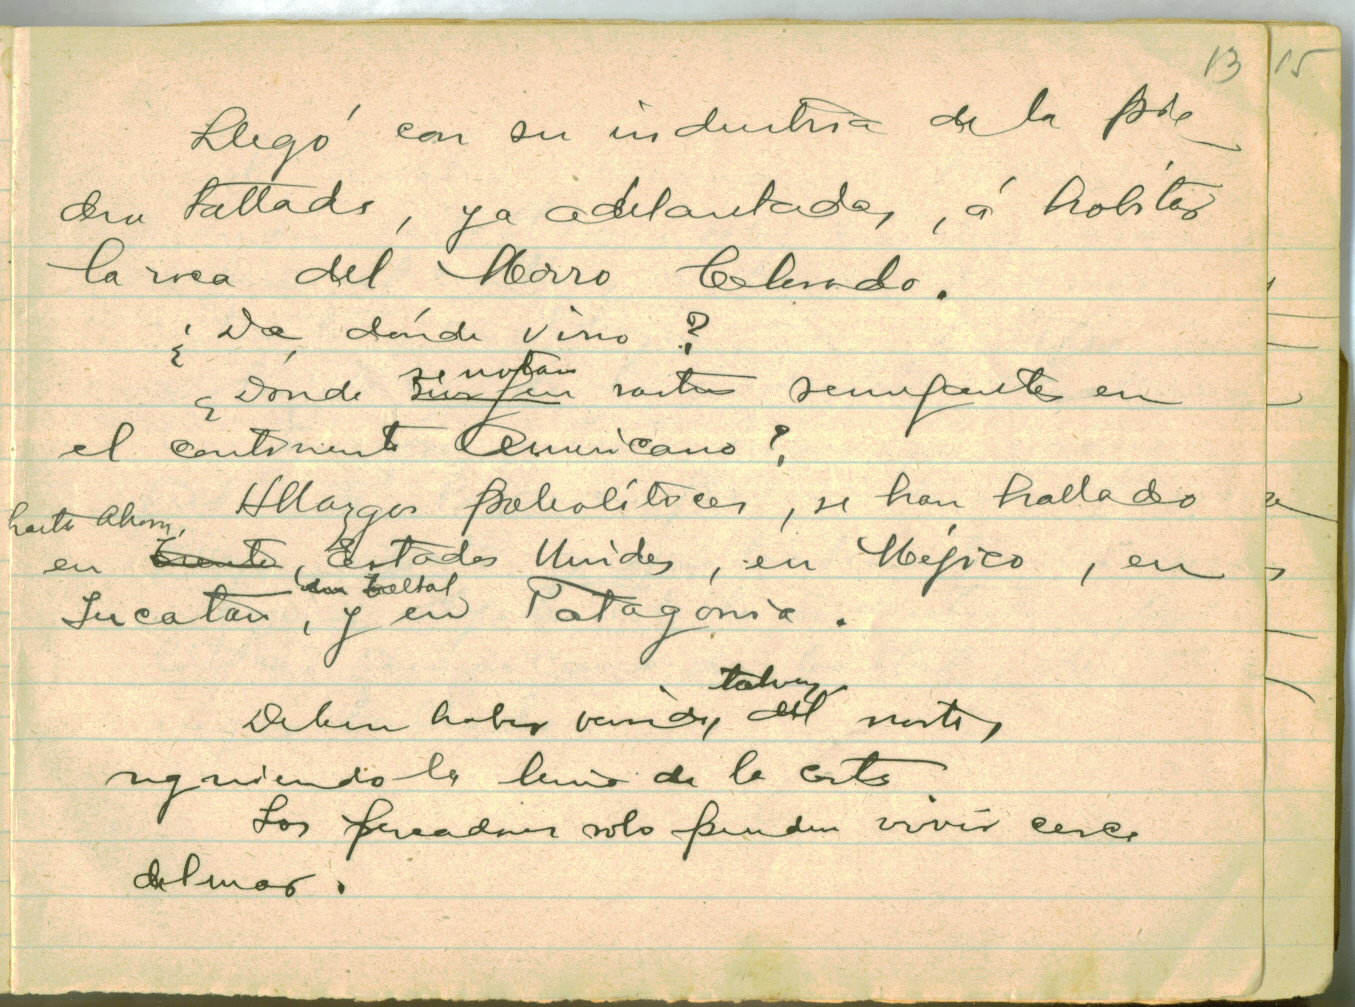 13 15
Llegó con su industria de la pie
dra tallada, ya adelantada, á habitar
la roca del Morro Colorado.
¿De dónde vino?
se notan
¿Dónde surgen rastros semejantes en
el continente Americano?
Hllazgos paleolíticos, se han hallado
hasta Ahora,
en Estados Unidos, en Méjico, en
en Taltal
Yucatán, y en Patagonia.
talvez
Deben haber venido, del norte,
siguiendo la linea de la costa
Los pescadores solo pueden vivir cerca
del mar.